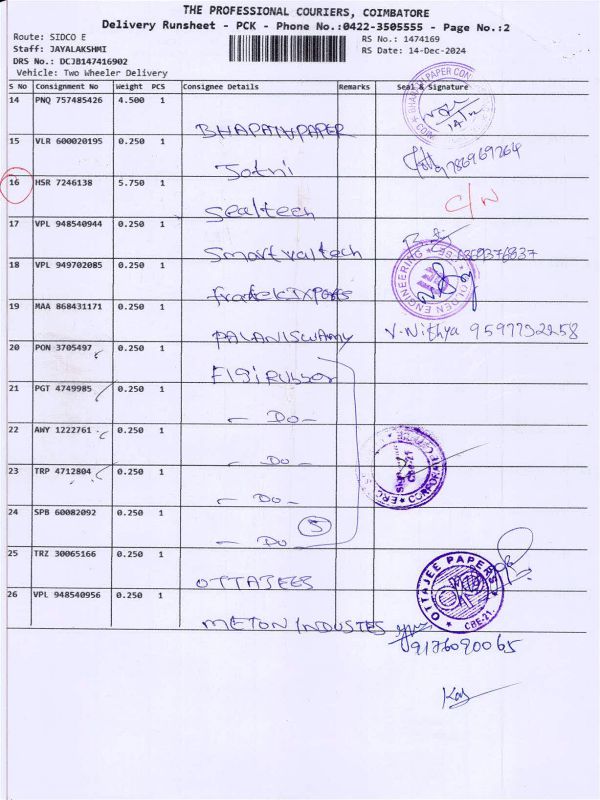 THE PROFESSIONAL COURIERS, COIMBATORE
Delivery Runsheet - PCK - Phone No.:0422-3505555 - Page No.:2
Route: SIDCO E
RS No.: 1474169
Staff: JAYALAKSHMI
RS Date: 14-Dec-2024
DRS No.: DCJB147416902
Vehicle: Two Wheeler Delivery
S No Consignment No Weight PCS Consignee Details Remarks Seal & Signature
14 PNQ 757485426 4.500 1
BHAPATHPAPER
15 VLR 600020195 0.250 1
Jotni
16 HSR 7246138 5.750 1
Sealtech C/N
17 VPL 948540944 0.250 1
Smart valtech
18 VPL 949702085 0.250 1
19 MAA 868431171 0.250 1
PALANISWAMY V.Nithya 9597732258
20 PON 3705497 0.250 1
Elgi Rubber
21 PGT 4749985 0.250 1
- Do -
22 AWY 1222761 0.250 1
- Do -
23 TRP 4712804 0.250 1
- Do -
24 SPB 60082092 0.250 1
5
- Do -
25 TRZ 30065166 0.250 1
OTTAJEES
OTTAJEE PAPERS
CBE-21.
26 VPL 948540956 0.250 1
METON INDUSTES
9176090065